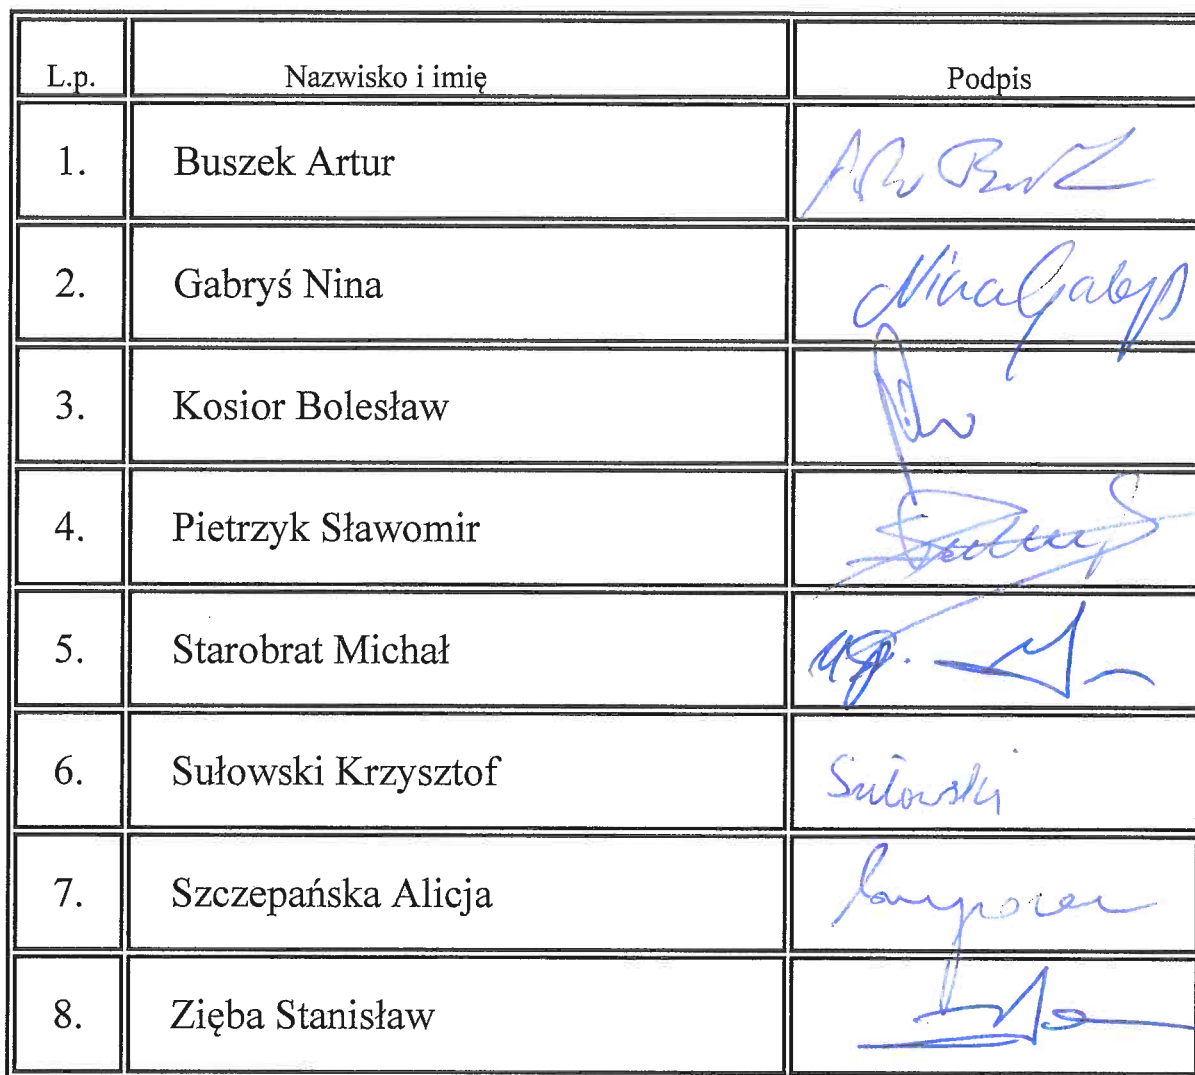 L.p. Nazwisko i imię Podpis
1. Buszek Artur
2. Gabryś Nina Nina Gabryś
3. Kosior Bolesław
4. Pietrzyk Sławomir
5. Starobrat Michał
6. Sułowski Krzysztof Sułowski
7. Szczepańska Alicja
8. Zięba Stanisław